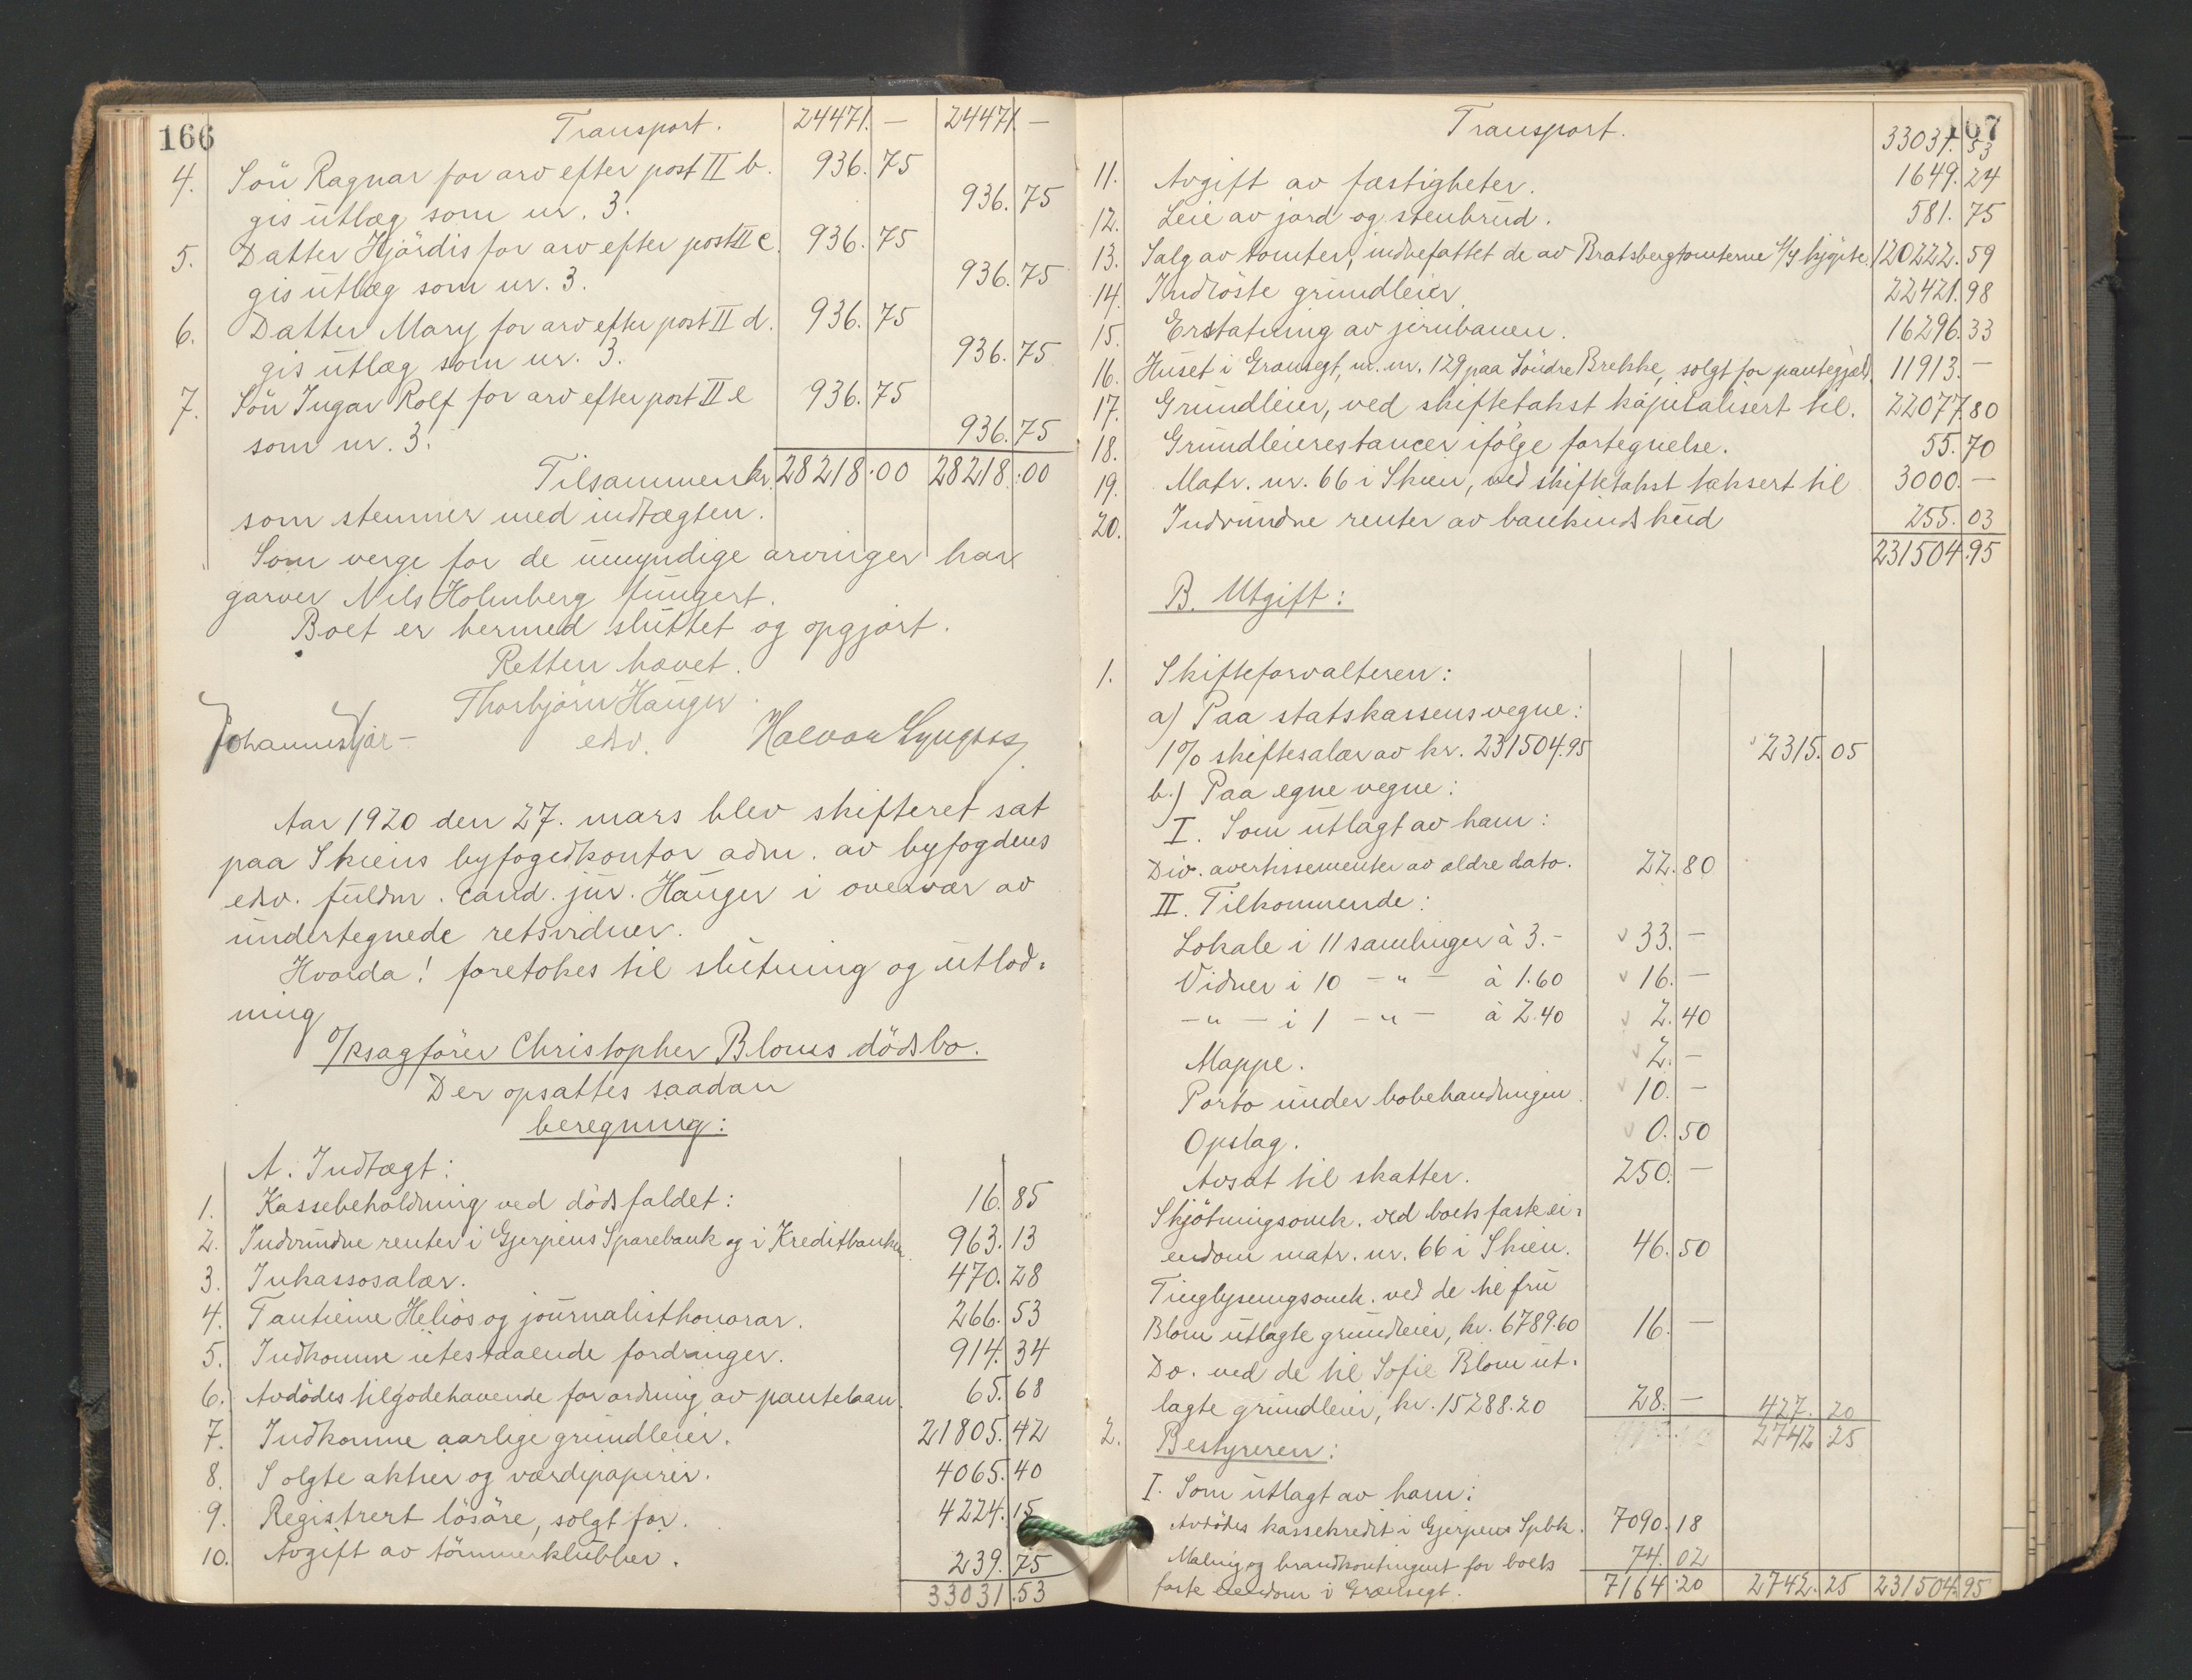 166
Transport. 24471.— 24471.—
4. Sön Ragnar for arv efter post II b. 936.75
gis utlæg som nr. 3. 936.75
5. Datter Hjördis for arv efter post II c. 936.75
gis utlæg som nr. 3. 936.75
6. Datter Mary for arv efter post II d. 936.75
gis utlæg som nr. 3. 936.75
7. Sön Ingar Rolf for arv efter post II e 936.75
som nr. 3. 936.75
Tilsammen kr. 28218.00 28218.00
som stemmer med indtægten.
Som verge for de umyndige arvinger har
garver Nils Holmberg fungert.
Boet er hermed sluttet og opgjort.
Retten hævet.
Thorbjörn Hauger
edsv.
Aar 1920 den 27. mars blev skifteret sat
paa Skiens byfogedkontor adm. av byfogdens
edsv. fuldm. cand. jur. Hauger i overvær av
undertegnede retsvidner.
Hvorda! foretokes til slutning og utlod-
ning
o/rsagförer Christopher Bloms dödsbo.
Der opsattes saadan
beregning:
A. Indtægt:
1. Kassebeholdning ved dödsfaldet: 16.85
2. Indvundne renter i Gjerpens Sparebank og i Kreditbanken. 963.13
3. Inkassosalær. 470.28
4. Tantieme Helios og journalisthonorar. 266.53
5. Indkomne utestaaende fordringer. 914.34
6. Avdödes tilgodehavende for ordning av pantelaan. 65.68
7. Indkomne aarlige grundleier. 21805.42
8. Solgte aktier og værdipapirer. 4065.40
9. Registrert lösöre, solgt for. 4224.15
10. Avgift av tömmerklubber. 239.75
33031.53
167
Transport. 33031.53
11. Avgift av fæstigheter. 1649.24
12. Leie av jord og stenbrud. 581.75
13. Salg av tomter, indbefattet de av Bratsbergtomterne A/S kjöpte. 120222.59
14. Indlöste grundleier. 22421.98
15. Erstatning av jernbanen. 16296.33
16. Huset i Grænsegt, m. nr. 129 paa Söndre Brekke, solgt for pantegjæld. 11913.—
17. Grundleier, ved skiftetakst kapitalisert til. 22077.80
18. Grundleierestancer ifölge fortegnelse. 55.70
19. Matr. nr. 66 i Skien, ved skiftetakst taksert til 3000.—
20. Indvundne renter av bankindskud 255.03
231504.95
B. Utgift:
1. Skifteforvalteren:
a) Paa statskassens vegne:
1% skiftesalær av kr. 231504.95 2315.05
b.) Paa egne vegne:
I. Som utlagt av ham:
Div. avertissementer av ældre dato. 22.80
II. Tilkommende:
Lokale i 11 samlinger à 3.– 33.—
Vidner i 10 – „ – à 1.60 16.—
– „ – i 1 – „ – à 2.40 2.40
Mappe. 2.—
Porto under bobehandlingen. 10.—
Opslag. 0.50
Avsat til skatter. 250.—
Skjötningsomk. ved boets faste ei-
endom matr. nr. 66 i Skien. 46.50
Tinglysningsomk. ved de til fru
Blom utlagte grundleier, kr. 6789.60 16.—
Do. ved de til Sofie Blom ut-
lagte grundleier, kr. 15288.20 28.— 427.20
2. Bestyreren: 2742.25
I. Som utlagt av ham:
Avdödes kassekredit i Gjerpens Spbk. 7090.18
Maling og brandkontingent for boets 74.02
faste eiendom i Grænsegt. 7164.20 2742.25 231504.95